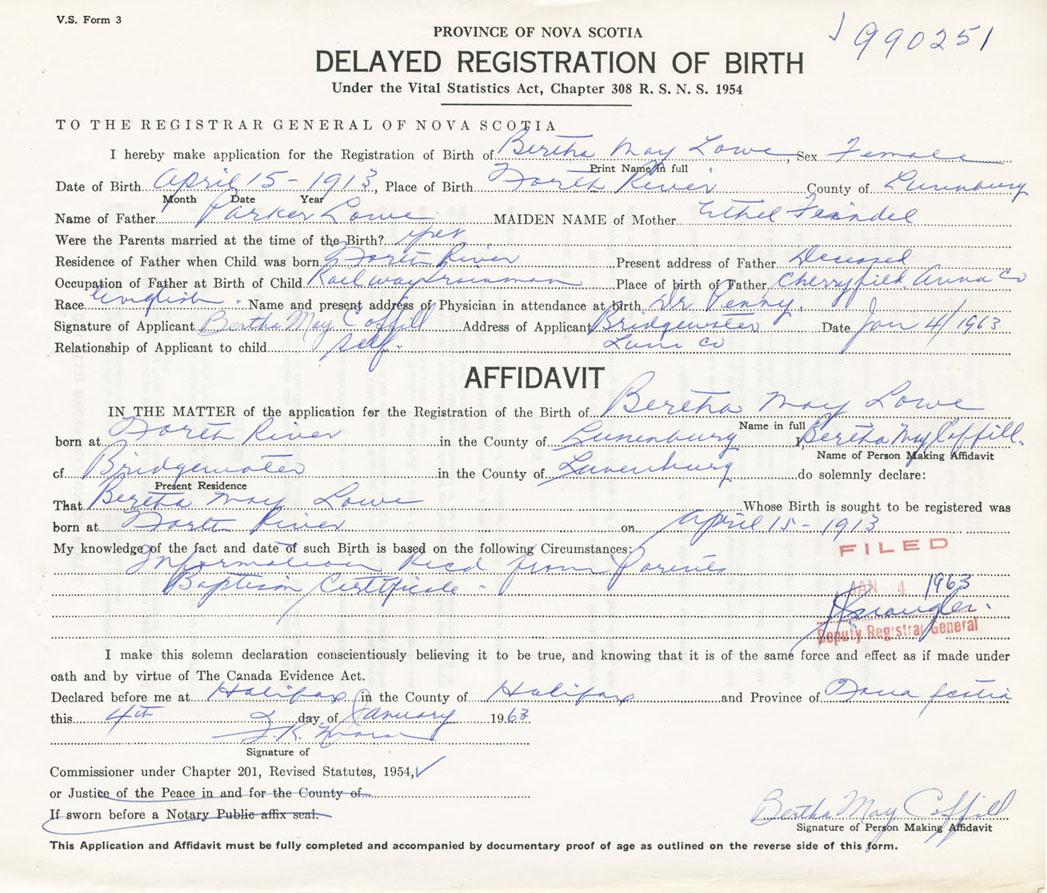 V.S. Form 3
PROVINCE OF NOVA SCOTIA
990251
DELAYED REGISTRATION OF BIRTH
Under the Vital Statistics Act, Chapter 308 R. S. N. S. 1954
TO THE REGISTRAR GENERAL OF NOVA SCOTIA
I hereby make application for the Registration of Birth of Bertha May Lowe, Sex Female
Print Name in full
Date of Birth April 15 - 1913, Place of Birth North River County of Lunenburg
Month Date Year
Name of Father Parker Lowe MAIDEN NAME of Mother Ethel Feindel
Were the Parents married at the time of the Birth? yes
Residence of Father when Child was born North River Present address of Father Deceased
Occupation of Father at Birth of Child Railway trainman Place of birth of Father Cherryfield Anna Co
Race English. Name and present address of Physician in attendance at birth Dr Penny.
Signature of Applicant Bertha May Coffill Address of Applicant Bridgewater Date Jan 4/1963
Relationship of Applicant to child self. Lun Co
AFFIDAVIT
IN THE MATTER of the application for the Registration of the Birth of Bertha May Lowe
Name in full
born at North River in the County of Lunenburg I, Bertha May Coffill.
Name of Person Making Affidavit
of Bridgewater in the County of Lunenburg do solemnly declare:
Present Residence
That Bertha May Lowe Whose Birth is sought to be registered was
born at North River on April 15 - 1913
My knowledge of the fact and date of such Birth is based on the following Circumstances:
FILED
Information Recd from Parents
Baptism Certificate -
JAN 4 1963
Deputy Registrar General
I make this solemn declaration conscientiously believing it to be true, and knowing that it is of the same force and effect as if made under
oath and by virtue of The Canada Evidence Act.
Declared before me at Halifax in the County of Halifax and Province of Nova Scotia
this 4th day of January 1963
Signature of
Commissioner under Chapter 201, Revised Statutes, 1954, ✓
or Justice of the Peace in and for the County of
If sworn before a Notary Public affix seal.
Bertha May Coffill
Signature of Person Making Affidavit
This Application and Affidavit must be fully completed and accompanied by documentary proof of age as outlined on the reverse side of this form.